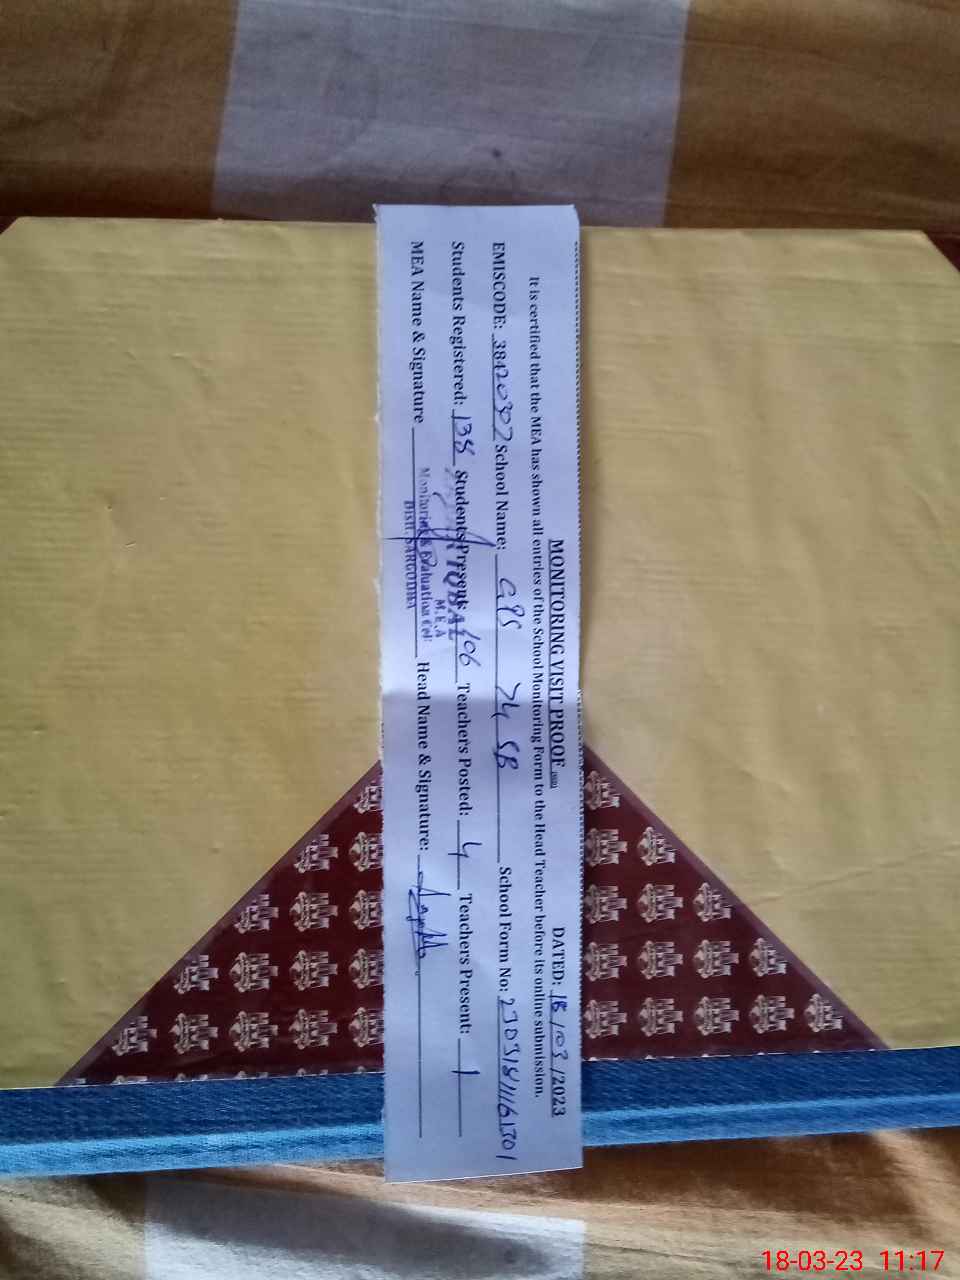 MONITORING VISIT PROOF DATED: 18/03/2023
It is certified that the MEA has shown all entries of the School Monitoring Form to the Head Teacher before its online submission.
EMISCODE: 38420302 School Name: GPS 74 SB School Form No:
Students Registered: 138 Students Present: 106 Teachers Posted: 4 Teachers Present: 1
MEA Name & Signature Head Name & Signature:
IQBAL
M.E.A
Monitoring & Evaluation Cell
Distt. SARGODHA
18-03-23 11:17